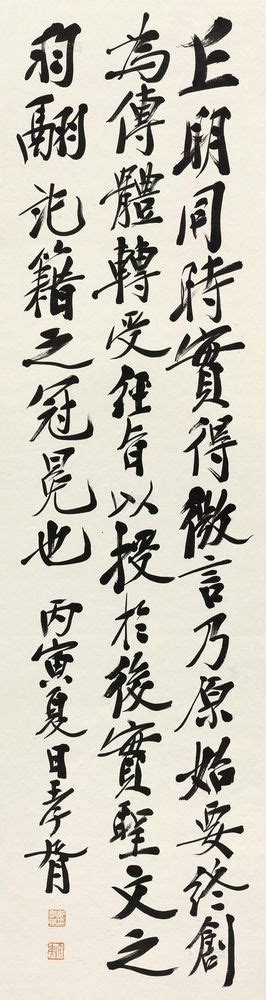 丘明同時實得微言乃原始要終創
為傳體轉受經旨以授於後實聖文之
羽翮記籍之冠冕也
丙寅夏日孝胥